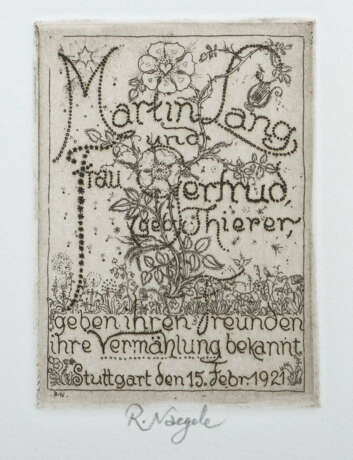 Martin Lang,
und
Frau Gertrud,
geb. Thierer,
geben ihren Freunden
ihre Vermählung bekannt
Stuttgart den 15. Febr. 1921
R.N.
R. Naegele